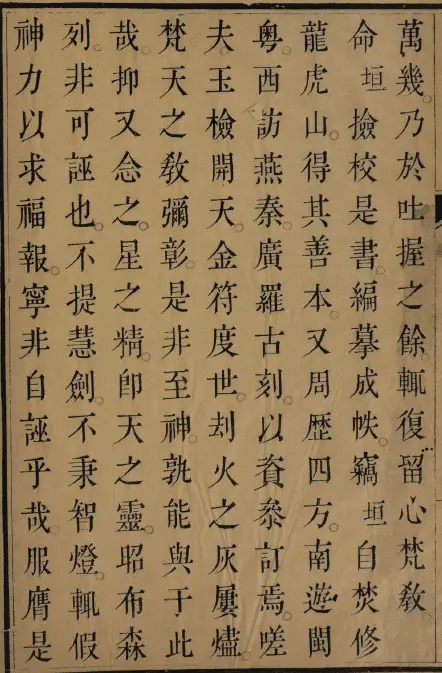 萬幾。乃於吐握之餘。輒復留心梵敎。
命垣撿校是書。編摹成帙。竊垣自焚修
龍虎山。得其善本。又周歷四方。南遊閩
粵。西訪燕秦。廣羅古刻。以資叅訂焉。嗟
夫。玉檢開天。金符度世。刦火之灰屢燼。
梵天之敎彌彰。是非至神。孰能與于此
哉。抑又念之。星之精。卽天之靈。昭布森
列。非可誣也。不提慧劍。不秉智燈。輒假
神力以求福報。寧非自誣乎哉。服膺是